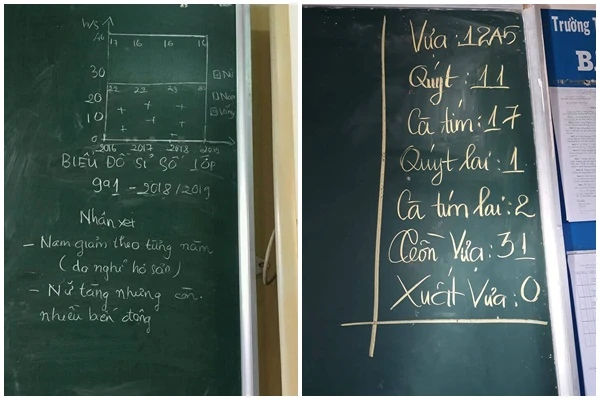 h/s
17 16 16 16
30
22 22 23 2
20
10
0
2016 2017 2018 2019
Nữ
Nam
BIỂU ĐỒ SĨ SỐ LỚP
9a1 - 2018/2019
Nhận xét
- Nam giảm theo từng năm
(do nghỉ hỏ sảo)
- Nữ tăng nhưng còn
nhiều biến động
Vựa: 12A5
Quýt: 11
Cà tím: 17
Quýt lai: 1
Cà tím lai: 2
Cồn Vựa: 31
Xuất Vựa: 0
Trường T
B